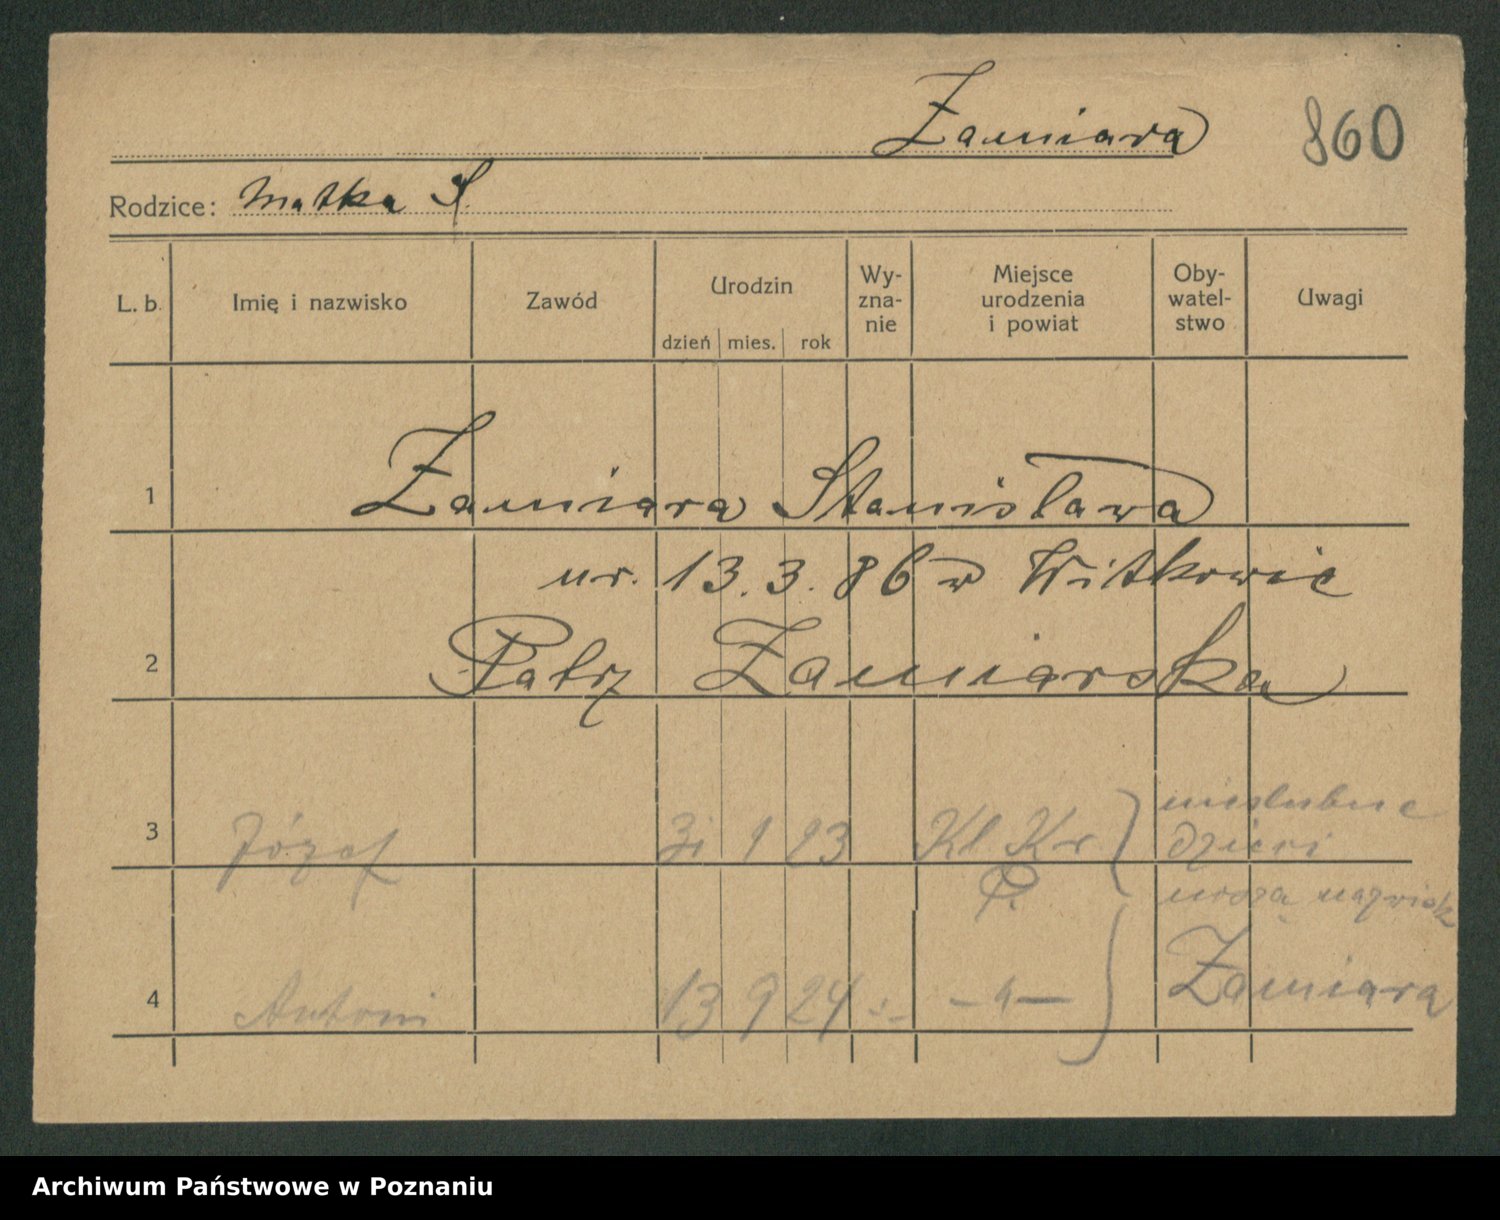 Zamiara 860
Rodzice: Matka S.
L. b. Imię i nazwisko Zawód Urodzin dzień mies. rok Wy-zna-nie Miejsce urodzenia i powiat Oby-watel-stwo Uwagi
1 Zamiara Stanisława
ur. 13.3.86 w Witkowie
2 Patrz Zamiarska
nieślubne
3 Józef 1 23 Kl. Kr. dzieci
P. noszą nazwisk
4 Antoni 13 9 24 -"- Zamiara
Archiwum Państwowe w Poznaniu